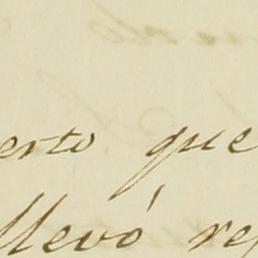 erto que
llevó re